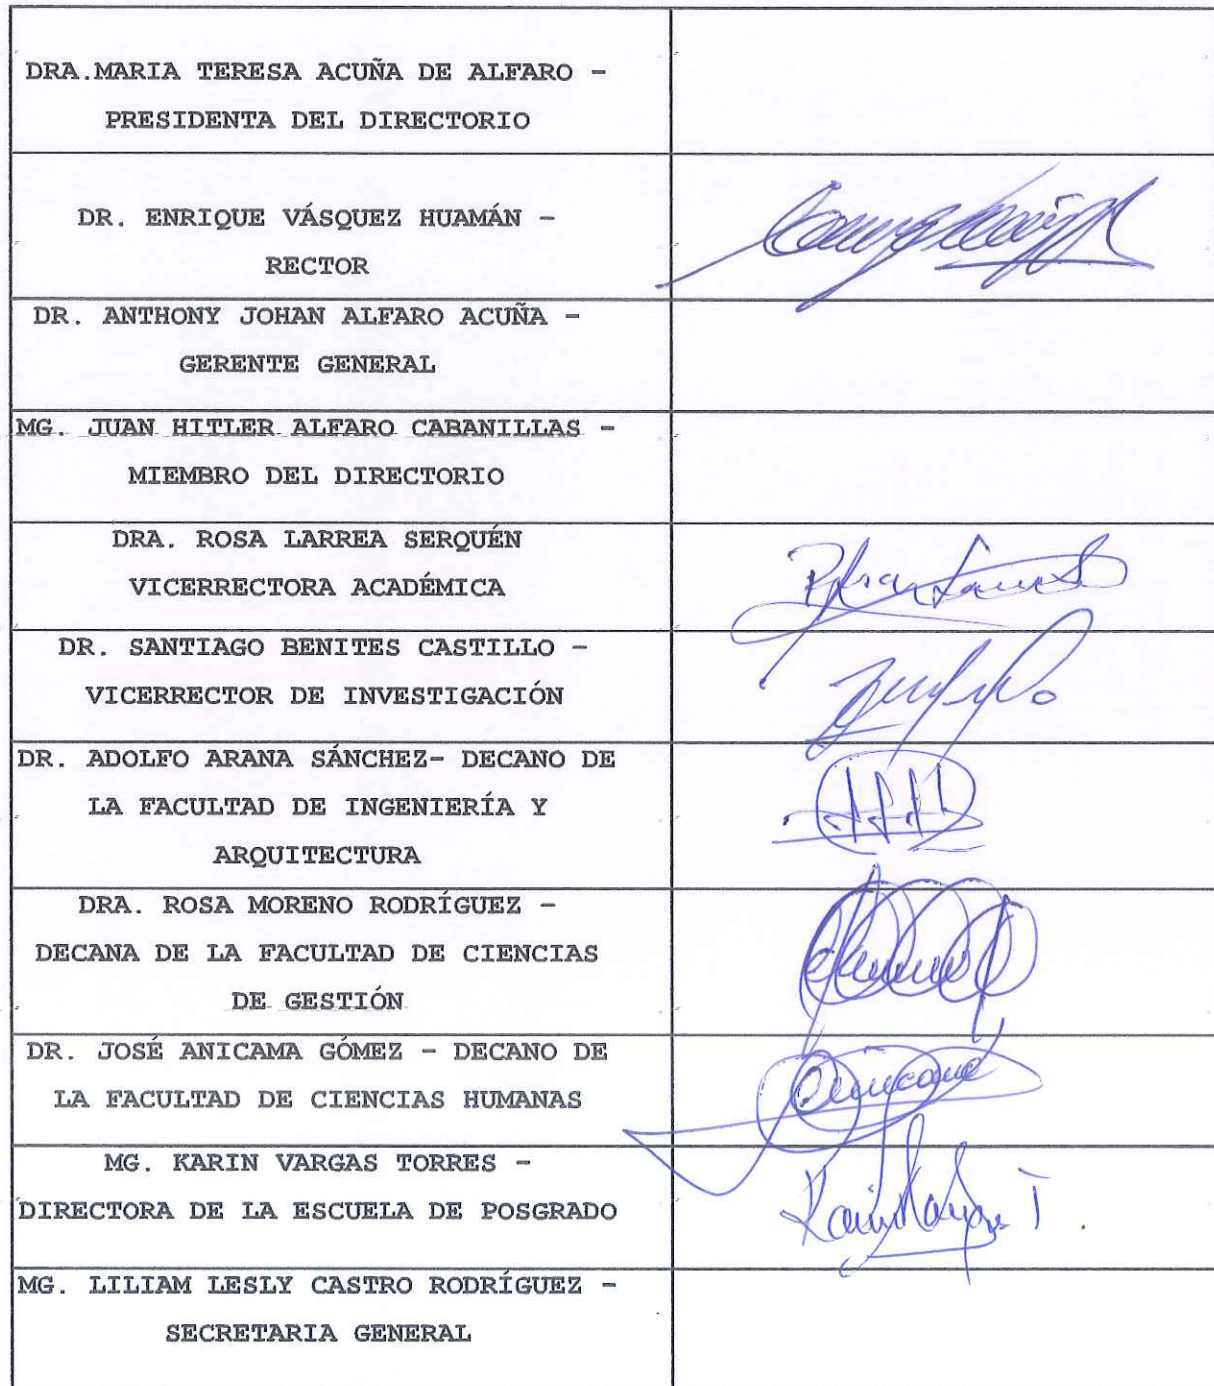 DRA.MARIA TERESA ACUÑA DE ALFARO -
PRESIDENTA DEL DIRECTORIO
DR. ENRIQUE VÁSQUEZ HUAMÁN -
RECTOR
DR. ANTHONY JOHAN ALFARO ACUÑA -
GERENTE GENERAL
MG. JUAN HITLER ALFARO CABANILLAS -
MIEMBRO DEL DIRECTORIO
DRA. ROSA LARREA SERQUÉN
VICERRECTORA ACADÉMICA
DR. SANTIAGO BENITES CASTILLO -
VICERRECTOR DE INVESTIGACIÓN
DR. ADOLFO ARANA SÁNCHEZ- DECANO DE
LA FACULTAD DE INGENIERÍA Y
ARQUITECTURA
DRA. ROSA MORENO RODRÍGUEZ -
DECANA DE LA FACULTAD DE CIENCIAS
DE GESTIÓN
DR. JOSÉ ANICAMA GÓMEZ - DECANO DE
LA FACULTAD DE CIENCIAS HUMANAS
MG. KARIN VARGAS TORRES -
DIRECTORA DE LA ESCUELA DE POSGRADO
MG. LILIAM LESLY CASTRO RODRÍGUEZ -
SECRETARIA GENERAL